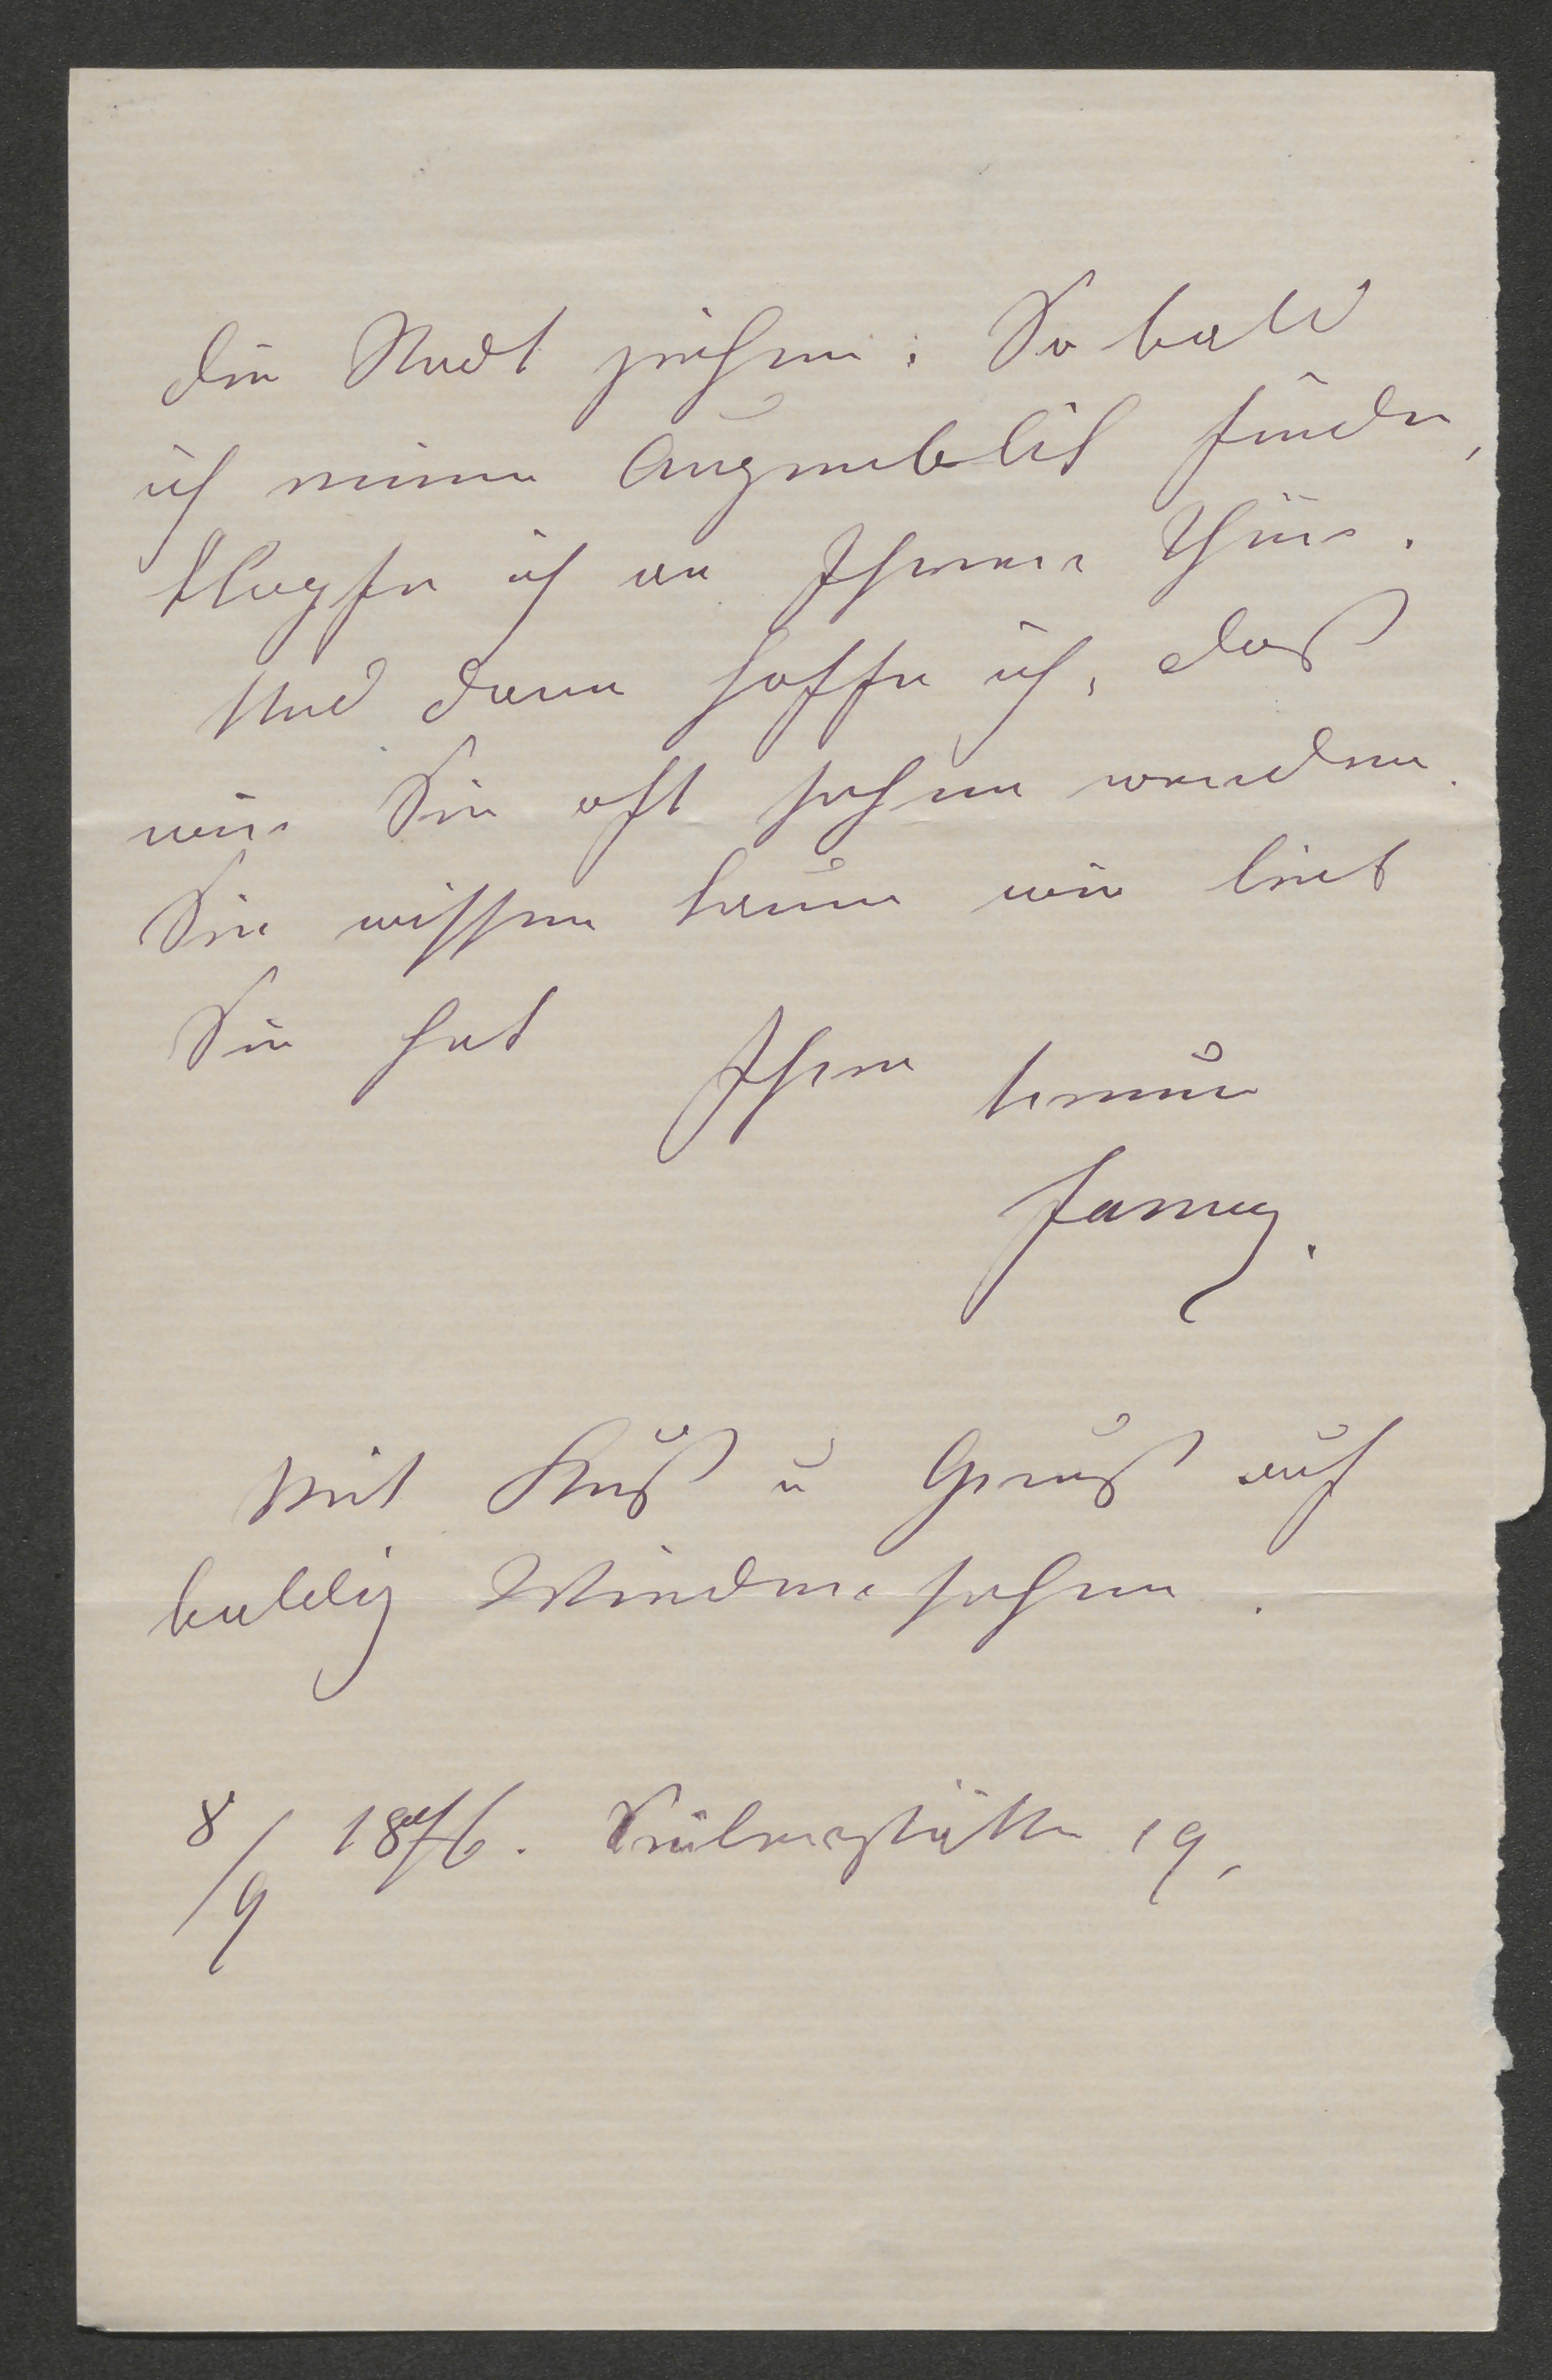 die Stadt ziehen. So bald
ich einen Augenblick finde,
klopfe ich an Ihrer Thür.
Und dann hoffe ich, daß
wir Sie oft sehen werden.
Sie wissen kaum wie lieb
Sie hat Ihre treue
Fanny.
Mit Kuß u Gruß auf
baldig Wiedersehen.
8/9 1876. Seilerstätte 19.